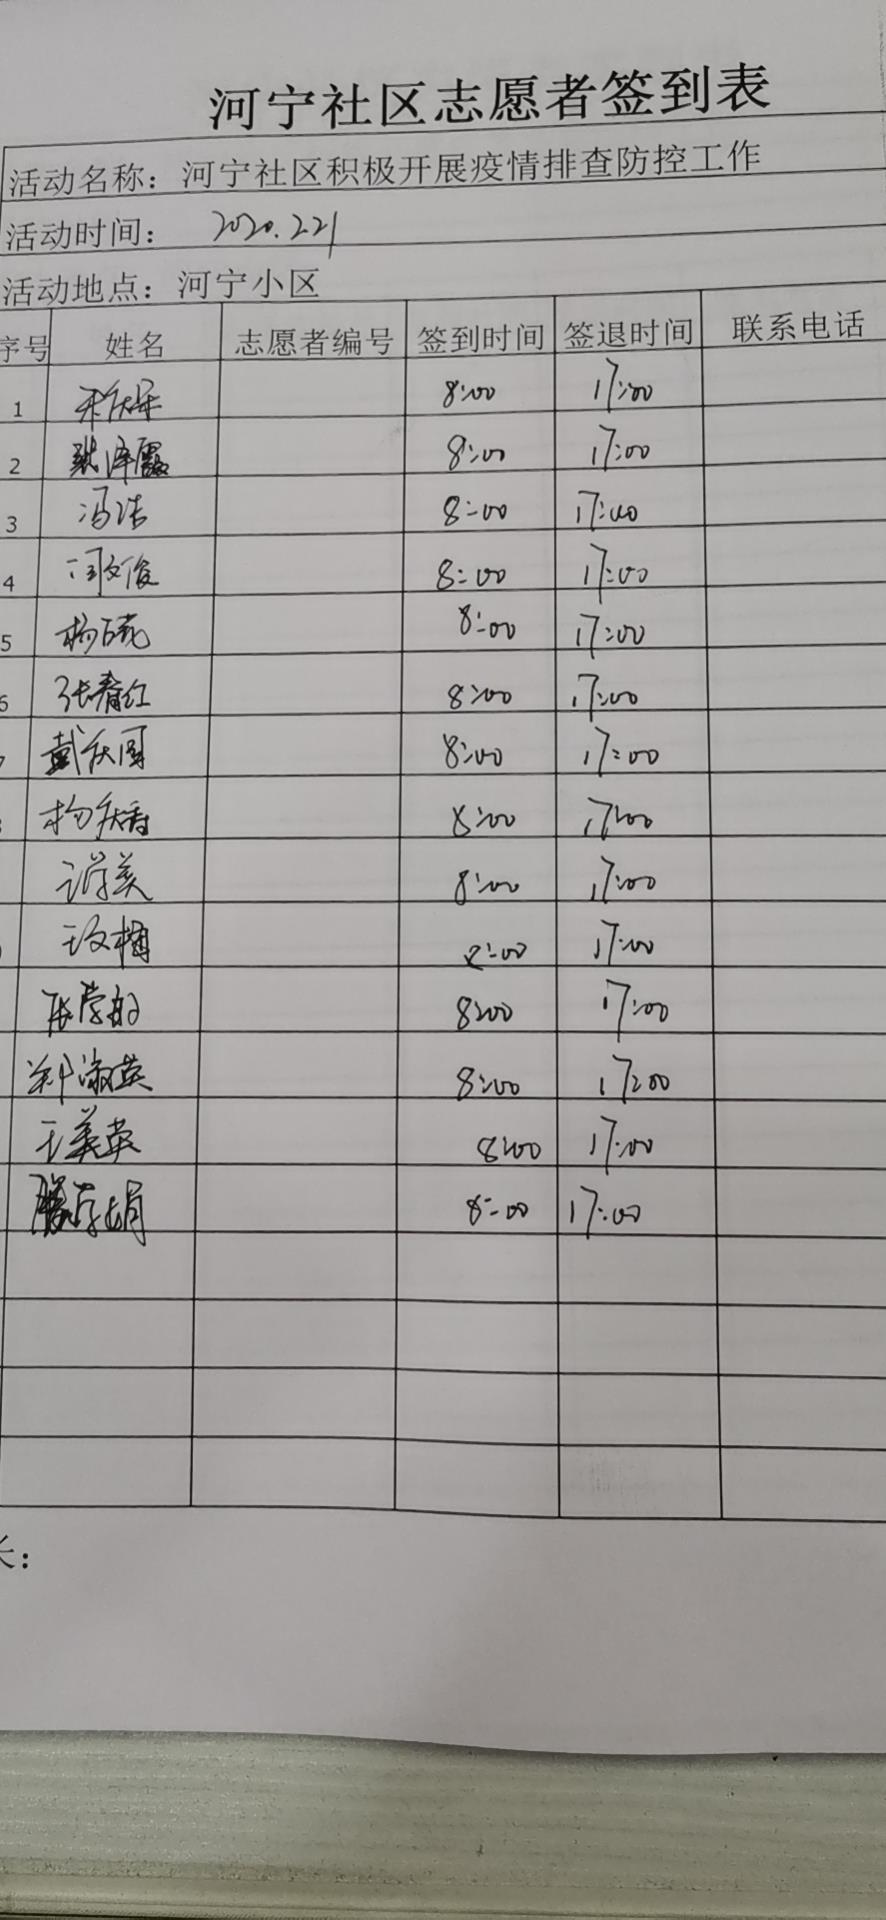 河宁社区志愿者签到表
活动名称：河宁社区积极开展疫情排查防控工作
活动时间： 2020.2.21
活动地点：河宁小区
序号 姓名 志愿者编号 签到时间 签退时间 联系电话
1 8:00 17:00
2 张泽霞 8:00 17:00
3 冯洁 8:00 17:00
4 闫文俊 8:00 17:00
5 8:00 17:00
6 张春红 8:00 17:00
7 戴庆国 8:00 17:00
杨庆春 8:00 17:00
8:00 17:00
王文楠 8:00 17:00
8:00 17:00
郑淑英 8:00 17:00
王美英 8:00 17:00
8:00 17:00
长：